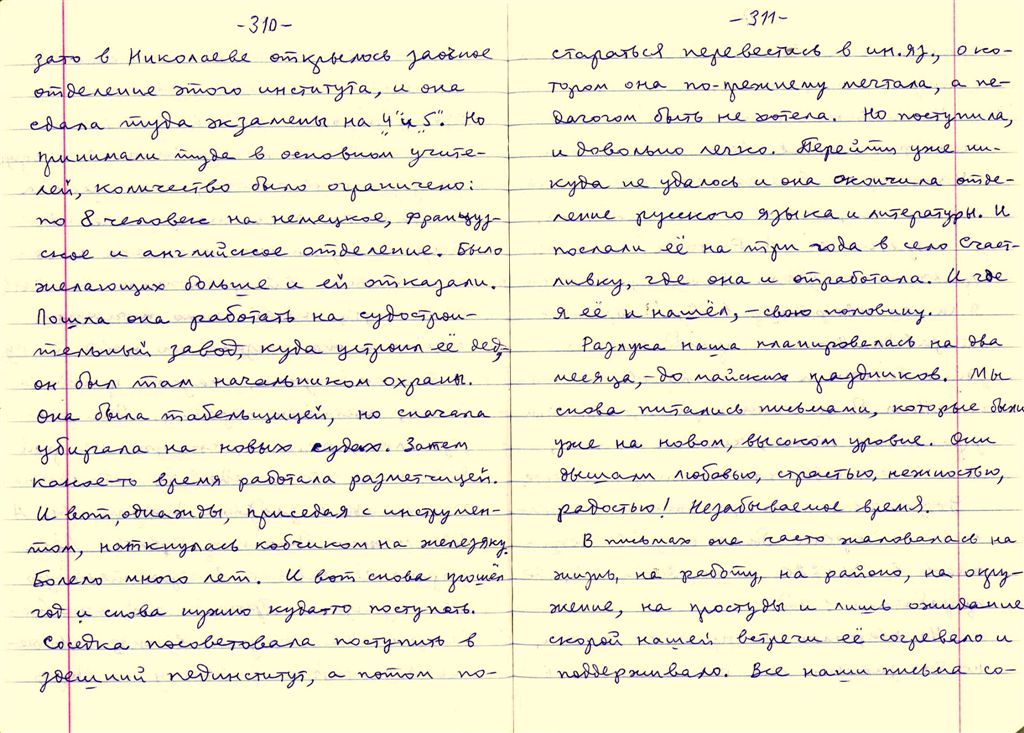 -310-
зато в Николаеве открылось заочное
отделение этого института, и она
сдала туда экзамены на „4" и „5". Но
принимали туда в основном учите-
лей, количество было ограничено:
по 8 человек на немецкое, француз-
ское и английское отделение. Было
желающих больше и ей отказали.
Пошла она работать на судострои-
тельный завод, куда устроил её дед,
он был там начальником охраны.
Она была табельщицей, но сначала
убирала на новых судах. Затем
какое-то время работала разметчицей.
И вот, однажды, приседая с инструмен-
том, наткнулась кобчиком на железяку.
Болело много лет. И вот снова прошёл
год и снова нужно куда-то поступать.
Соседка посоветовала поступить в
здешний пединститут, а потом по-
-311-
стараться перевестись в ин.яз., о ко-
тором она по-прежнему мечтала, а пе-
дагогом быть не хотела. Но поступила,
и довольно легко. Перейти уже ни-
куда не удалось и она окончила отде-
ление русского языка и литературы. И
послали её на три года в село Счаст-
ливку, где она и отработала. И где
я её и нашёл, – свою половину.
Разлука наша планировалась на два
месяца, – до майских праздников. Мы
снова питались письмами, которые были
уже на новом, высоком уровне. Они
дышали любовью, страстью, нежностью,
радостью! Незабываемое время.
В письмах она часто жаловалась на
жизнь, на работу, на районо, на окру-
жение, на простуды и лишь ожидание
скорой нашей встречи её согревало и
поддерживало. Все наши письма со-